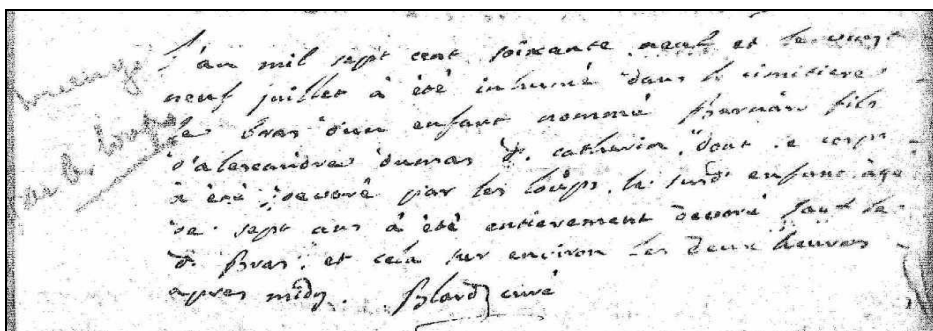 L'an mil sept cent soixante neuf et le vingt
neuf juillet à été inhumé dans le cimitiere
le bras d'un enfant nommé fils
d'alexandre dumas d. catherin, dont le corps
à été devoré par les loups. le surd. enfant âgé
de sept ans à été entierement devoré sauf le
d. Bras. et cela sur environ les deux heures
apres midy. Blard curé
mangé
par les loups